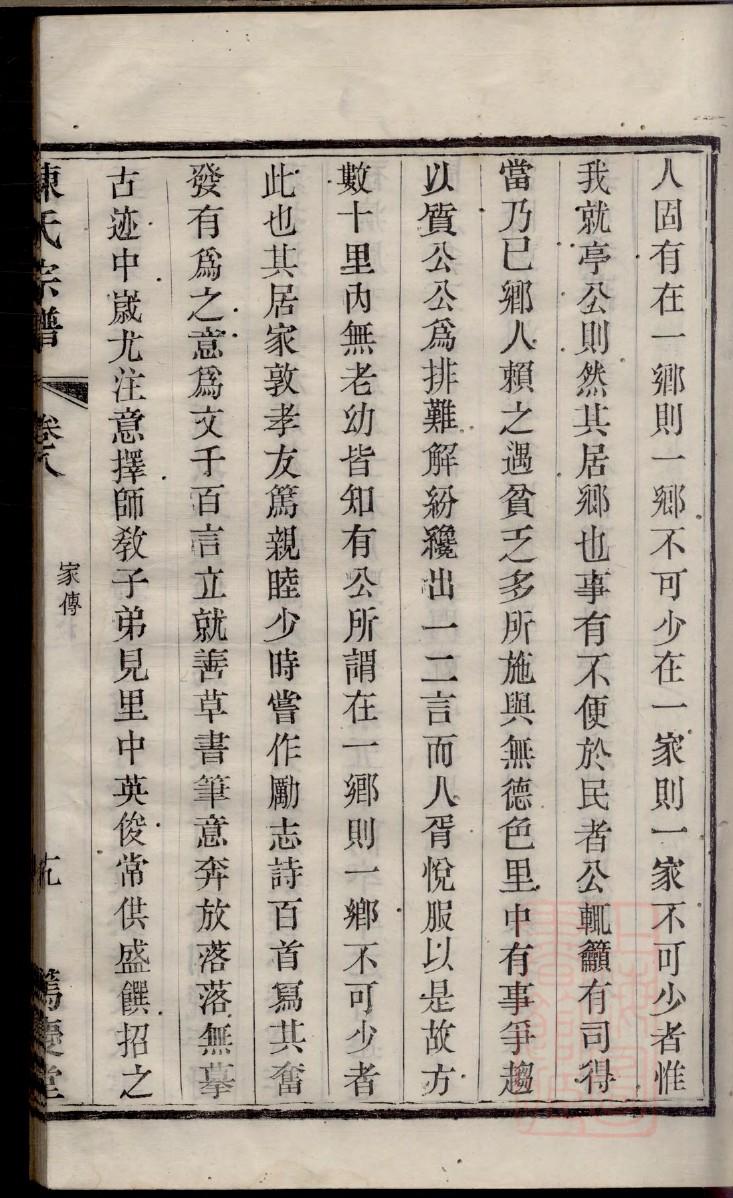 人固有在一鄉則一鄉不可少在一家則一家不可少者惟
我就亭公則然其居鄉也事有不便於民者公輒籲有司得
當乃已鄉人賴之遇貧乏多所施與無德色里中有事爭趨
以質公公爲排難解紛纔出一二言而人胥悅服以是故方
數十里內無老幼皆知有公所謂在一鄉則一鄉不可少者
此也其居家敦孝友篤親睦少時嘗作勵志詩百首寫其奮
發有爲之意爲文千百言立就善草書筆意奔放落落無摹
古迹中歲尤注意擇師教子弟見里中英俊常供盛饌招之
陳氏宗譜
卷八
家傳
篤慶堂